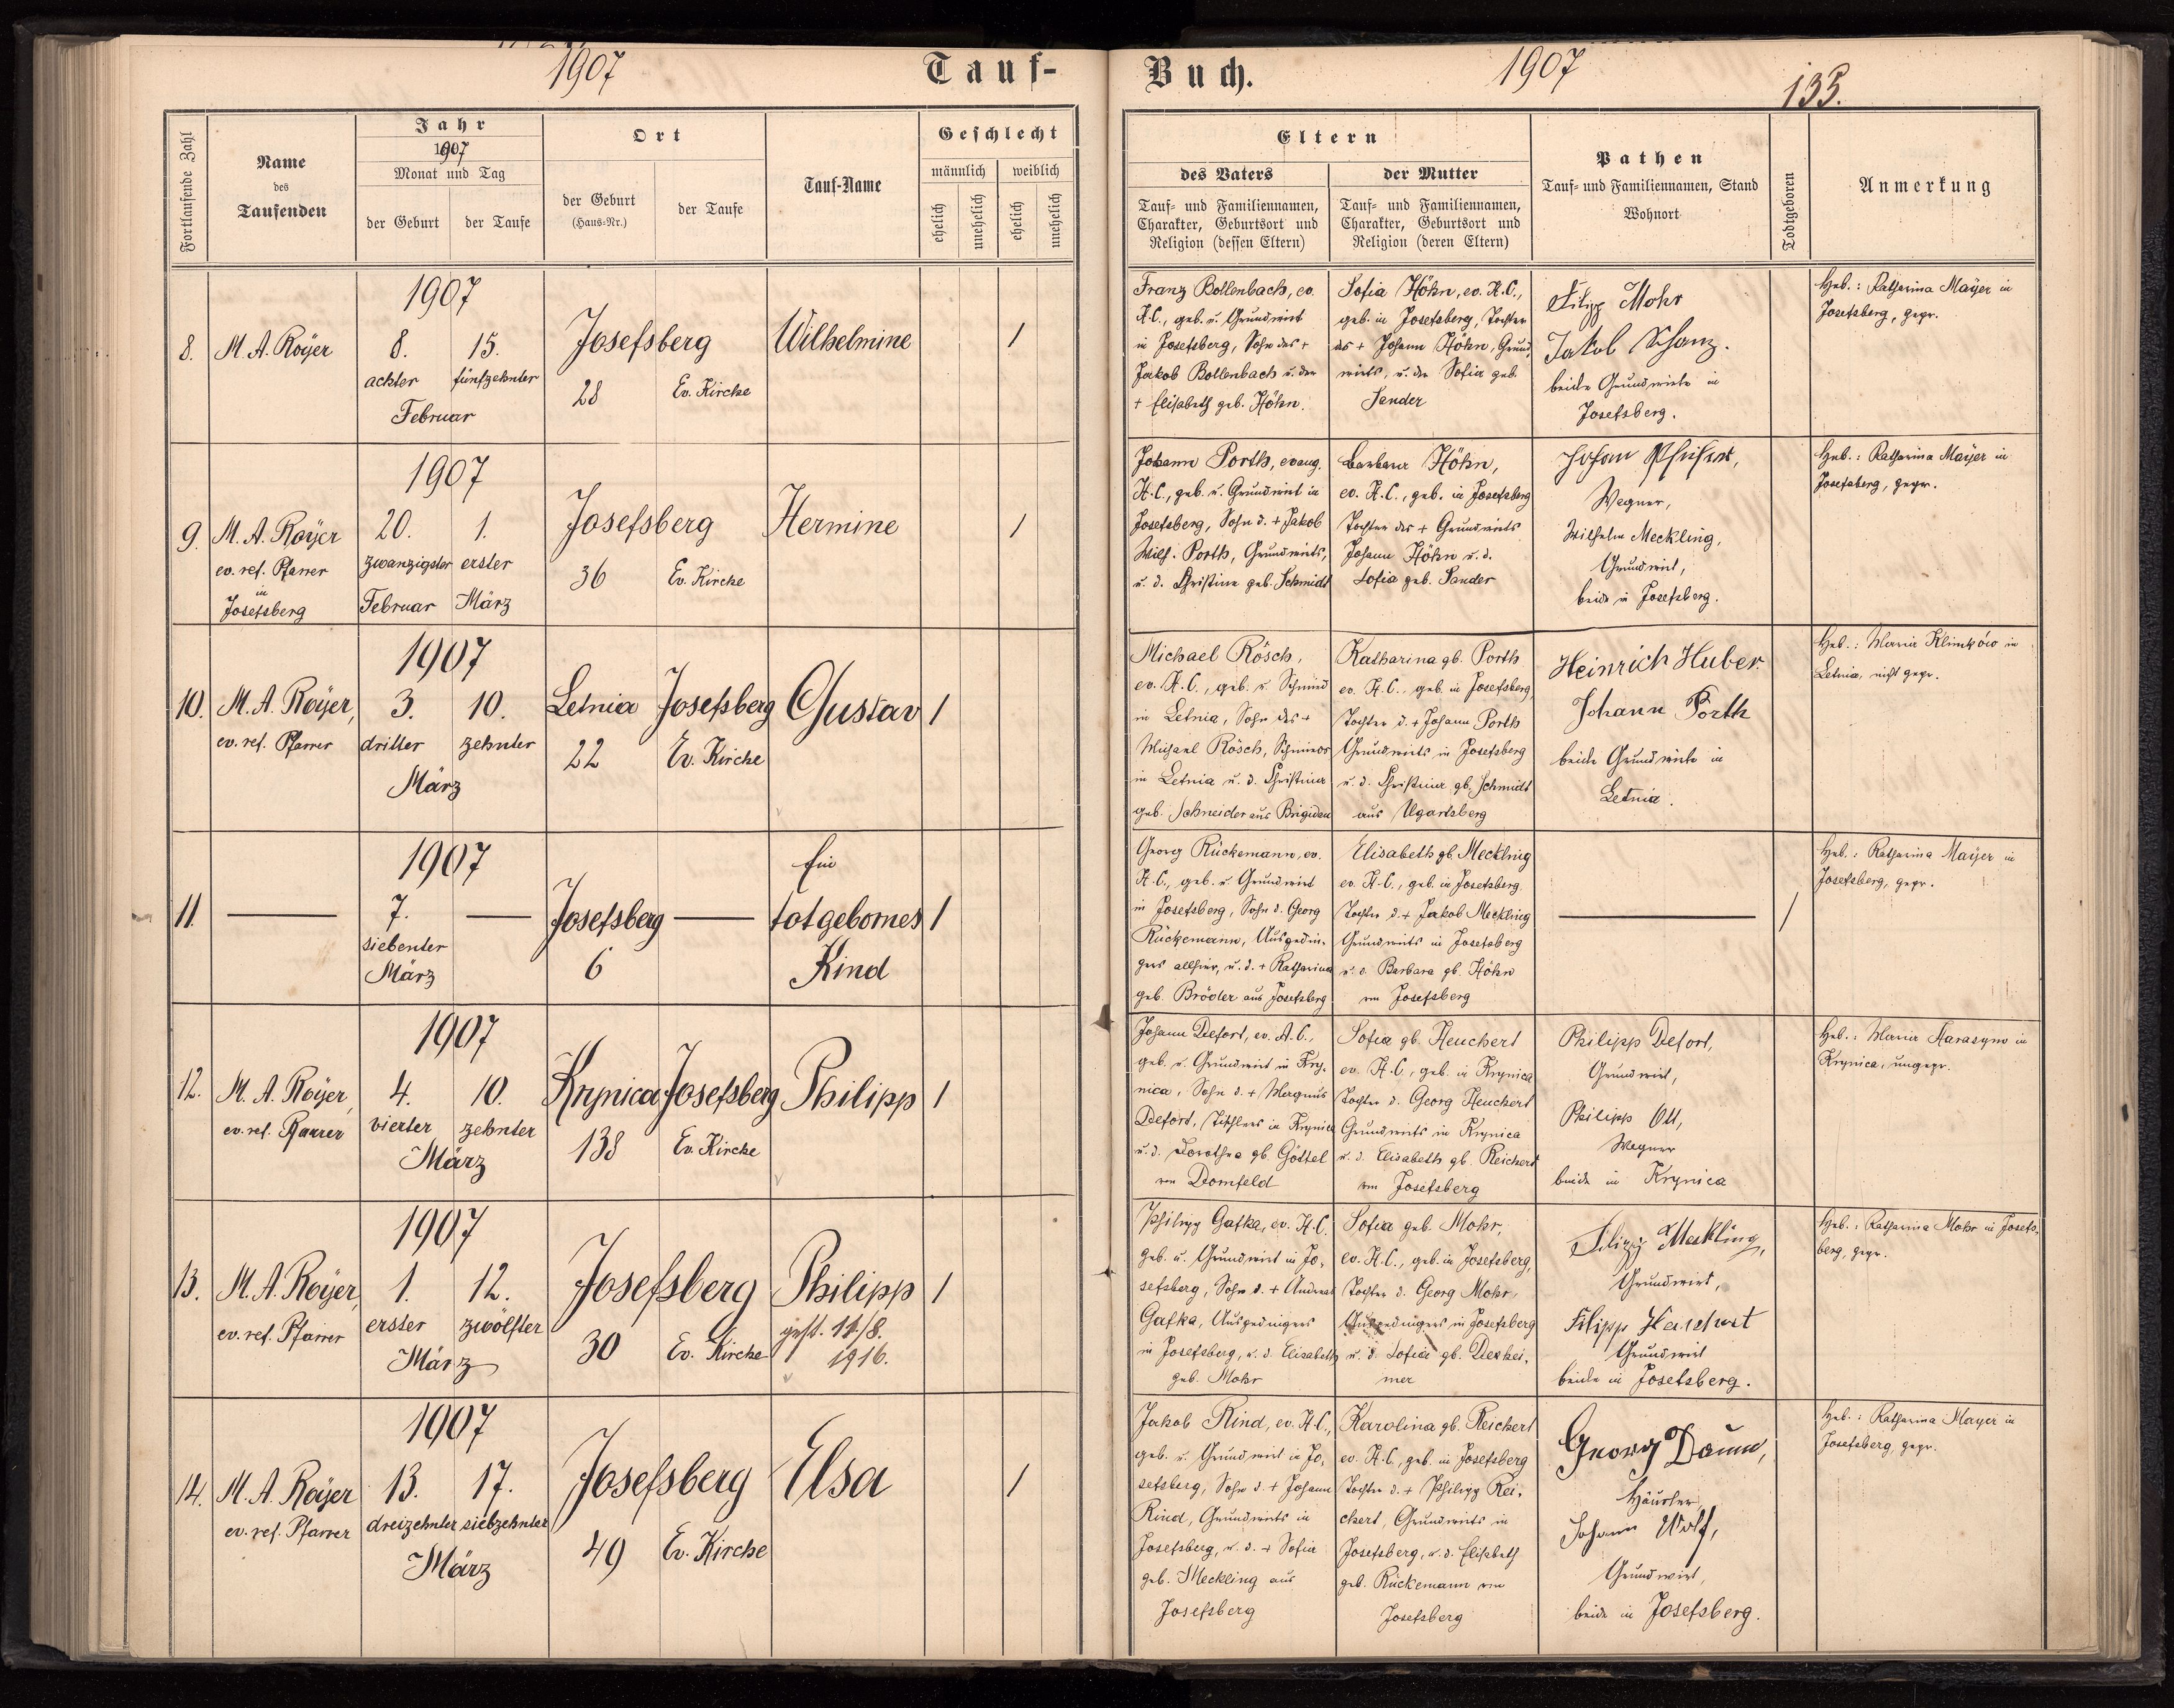 1907
Tauf-
Buch.
1907
135.
Fortlaufende Zahl
Name
des
Taufenden
Jahr
1907
Monat und Tag
der Geburt
der Taufe
Ort
der Geburt
(Haus-Nr.)
der Taufe
Tauf-Name
Geschlecht
männlich
weiblich
ehelich
unehelich
ehelich
unehelich
Eltern
des Vaters
Tauf- und Familiennamen,
Charakter, Geburtsort und
Religion (dessen Eltern)
der Mutter
Tauf- und Familiennamen,
Charakter, Geburtsort und
Religion (deren Eltern)
Pathen
Tauf- und Familiennamen, Stand
Wohnort
Todtgeboren
Anmerkung
8.
M. A. Royer
1907
8. 15.
achter fünfzehnter
Februar
Josefsberg
28 Ev. Kirche
Wilhelmine
1
Franz Bollenbach, ev.
H.C., geb. u. Grundwirt
in Josefsberg, Sohn des +
Jakob Bollenbach u. der
+ Elisabeth geb. Höhn.
Sofia Höhn, ev. H.C.,
geb. in Josefsberg, Tochter
des + Johann Höhn, Grund-
wirts, u. der Sofia geb.
Sander
Filipp Mohr
Jakob Schanz.
beide Grundwirte in
Josefsberg.
Heb.: Katharina Mayer in
Josefsberg, gepr.
9.
M. A. Royer
ev. ref. Pfarrer
in
Josefsberg
1907
20. 1.
zwanzigster erster
Februar März
Josefsberg
36 Ev. Kirche
Hermine
1
Johann Porth, evang.
H.C., geb. u. Grundwirt in
Josefsberg, Sohn d. + Jakob
Wilh. Porth, Grundwirts,
u. d. Christine geb. Schmidt
Barbara Höhn,
ev. H.C., geb. in Josefsberg
Tochter des + Grundwirts
Johann Höhn u. d.
Sofia geb. Sander
Johan Pfeifer,
Wagner,
Wilhelm Meckling,
Grundwirt,
beide in Josefsberg.
Heb.: Katharina Mayer in
Josefsberg, gepr.
10.
M. A. Royer,
ev. ref. Pfarrer
1907
3. 10.
dritter zehnter
März
Letnia Josefsberg
22 Ev. Kirche
Gustav
1
Michael Rösch,
ev. H.C., geb. u. Schmied
in Letnia, Sohn des +
Michael Rösch, Schmieds
in Letnia u. d. Christina
geb. Schneider aus Brigidau
Katharina gb. Porth
ev. H.C., geb. in Josefsberg,
Tochter d. + Johann Porth
Grundwirts in Josefsberg
u. d. Christina gb. Schmidt
aus Ugartsberg
Heinrich Huber
Johann Porth
beide Grundwirte in
Letnia.
Heb.: Maria Klimków in
Letnia, nicht gepr.
11.
1907
7.
siebenter
März
Josefsberg
6
Ein
totgebornes
Kind
1
Georg Rückemann, ev.
H.C., geb. u. Grundwirt
in Josefsberg, Sohn d. Georg
Rückemann, Ausgedin-
gers allhier, u. d. + Katharina
geb. Bröder aus Josefsberg
Elisabeth gb. Meckling
ev. H.C., geb. in Josefsberg.
Tochter d. + Jakob Meckling
Grundwirts in Josefsberg
u. d. Barbara gb. Höhn
von Josefsberg
1
Heb.: Katharina Mayer in
Josefsberg, gepr.
12.
M. A. Royer,
ev. ref. Pfarrer
1907
4. 10.
vierter zehnter
März
Krynica Josefsberg
138 Ev. Kirche
Philipp
1
Johann Defort, ev. A.C.,
geb. u. Grundwirt in Kry-
nica, Sohn d. + Magnus
Defort, Tischlers in Krynica
u. d. Dorothea gb. Göttel
von Dornfeld
Sofia gb. Heuchert
ev. H.C., geb. in Krynica
Tochter d. Georg Heuchert
Grundwirts in Krynica
u. d. Elisabeth gb. Reichert
von Josefsberg
Philipp Defort,
Grundwirt,
Philipp Ott,
Wagner
beide in Krynica
Heb.: Maria Harasym in
Krynica, ungepr.
13.
M. A. Royer,
ev. ref. Pfarrer
1907
1. 12.
erster zwölfter
März
Josefsberg
30 Ev. Kirche
Philipp
gest. 11./8.
1916.
1
Philipp Gafka, ev. H.C.
geb. u. Grundwirt in Jo-
sefsberg, Sohn d. + Andreas
Gafka, Ausgedingers
in Josefsberg, u. d. Elisabeth
geb. Mohr
Sofia geb. Mohr,
ev. H.C., geb. in Josefsberg,
Tochter d. Georg Mohr,
Ausgedingers in Josefsberg
u. d. Sofia gb. Dexhei-
mer
Filipp Meckling,
Grundwirt,
Filipp Heuchert
Grundwirt
beide in Josefsberg.
Heb.: Katharina Mohr in Josefs-
berg, gepr.
14.
M. A. Royer
ev. ref. Pfarrer
1907
13. 17.
dreizehnter siebzehnter
März
Josefsberg
49 Ev. Kirche
Elsa
1
Jakob Rind, ev. H.C.,
geb. u. Grundwirt in Jo-
sefsberg, Sohn d. + Johann
Rind, Grundwirts in
Josefsberg, u. d. + Sofia
geb. Meckling aus
Josefsberg
Karolina gb. Reichert
ev. H.C., geb. in Josefsberg
Tochter d. + Philipp Rei-
chert, Grundwirts in
Josefsberg, u. d. Elisabeth
geb. Rückemann von
Josefsberg
Georg Daum,
Häusler,
Johann Wolf,
Grundwirt,
beide in Josefsberg.
Heb.: Katharina Mayer in
Josefsberg, gepr.